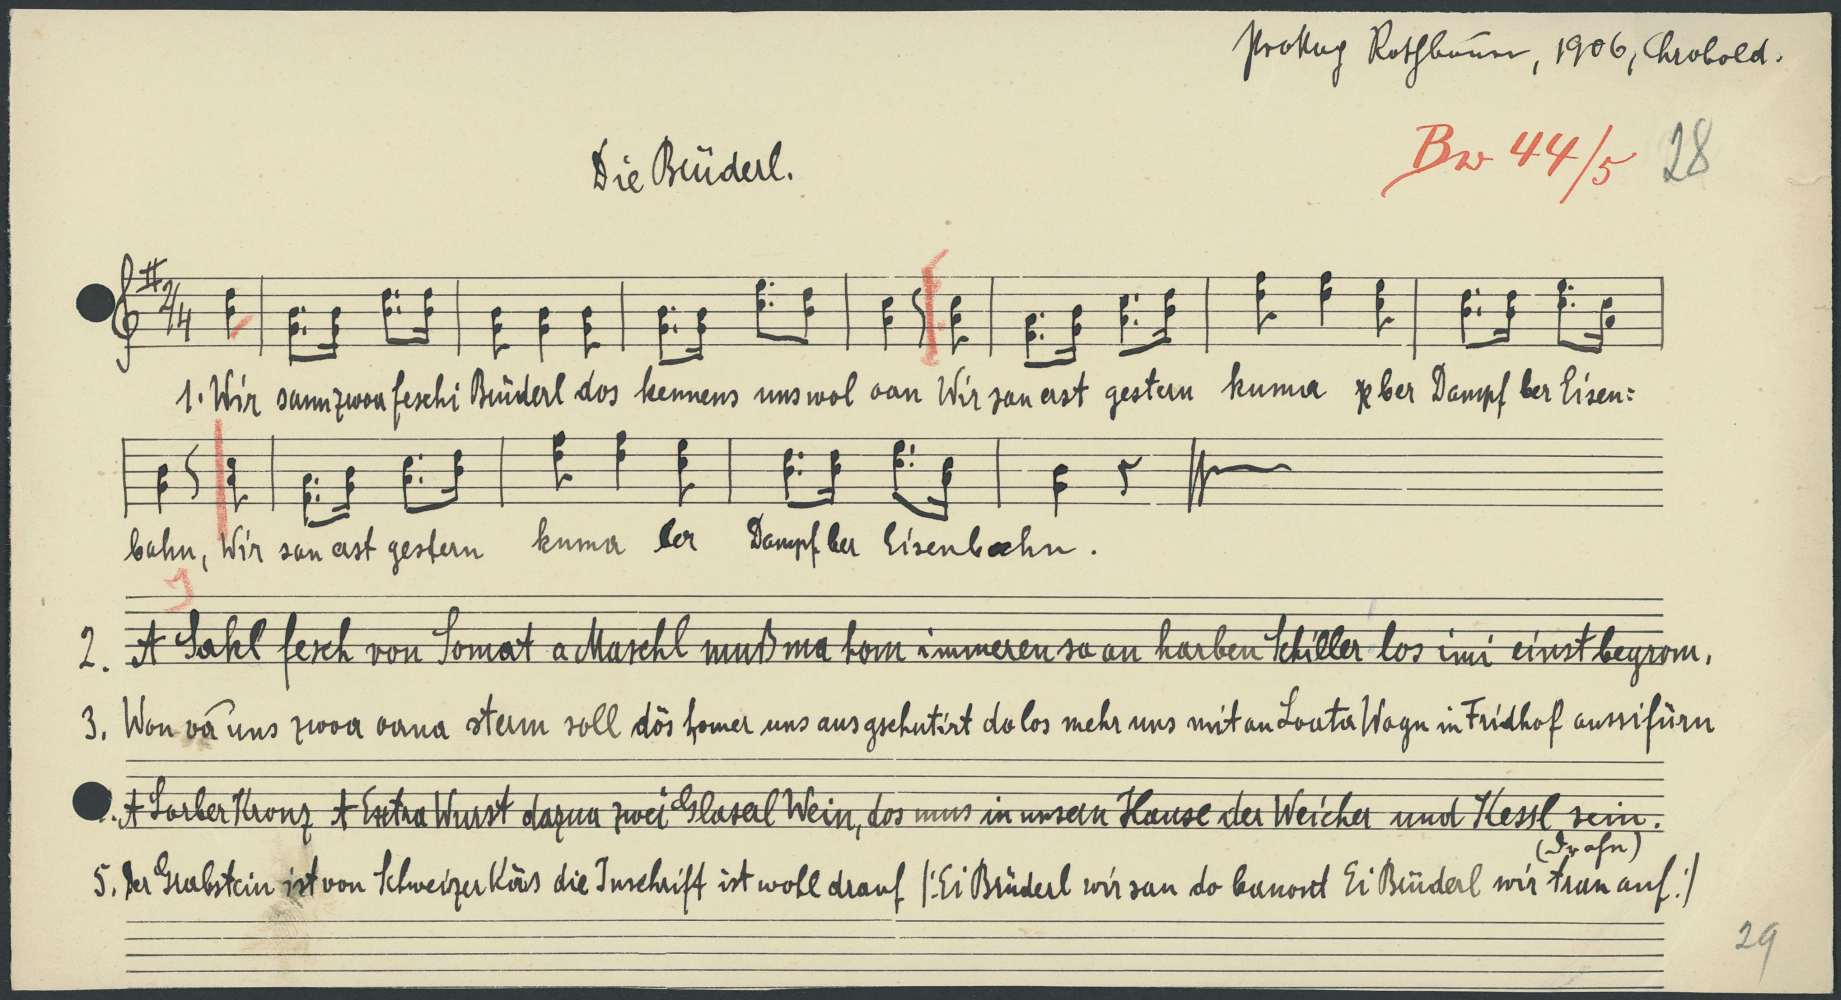 Prokop Rothbauer, 1906, Chrobold.
Bw 44/5 28
Die Brüderl.
2/4
1. Wir sann zwoa feschi Brüderl dos kennens uns wol oan Wir san erst gestern kuma per Dampf ber Eisen=
bahn, Wir san erst gestern kuma ber Dampf ber Eisenbahn.
2. A Sakl fesch von Somat a Maschl muß ma hom immeren so an harben Schiller los imi einst begrom.
3. Won va uns zwoa oana sterm soll dös homer uns ausgschutirt do los mehr uns mit an Loata Wagn in Fridhof aussifürn
A Lorber Kronz A Extra Wurst dazua zwei Glaserl Wein, dos mus in unsern Hause der Weicher und Kessl sein.
(Drahn)
5. Der Grabstein ist von Schweizer Käs die Inschrift ist woll drauf /:Ei Brüderl wir san do banond Ei Brüderl wir tran auf:/
29